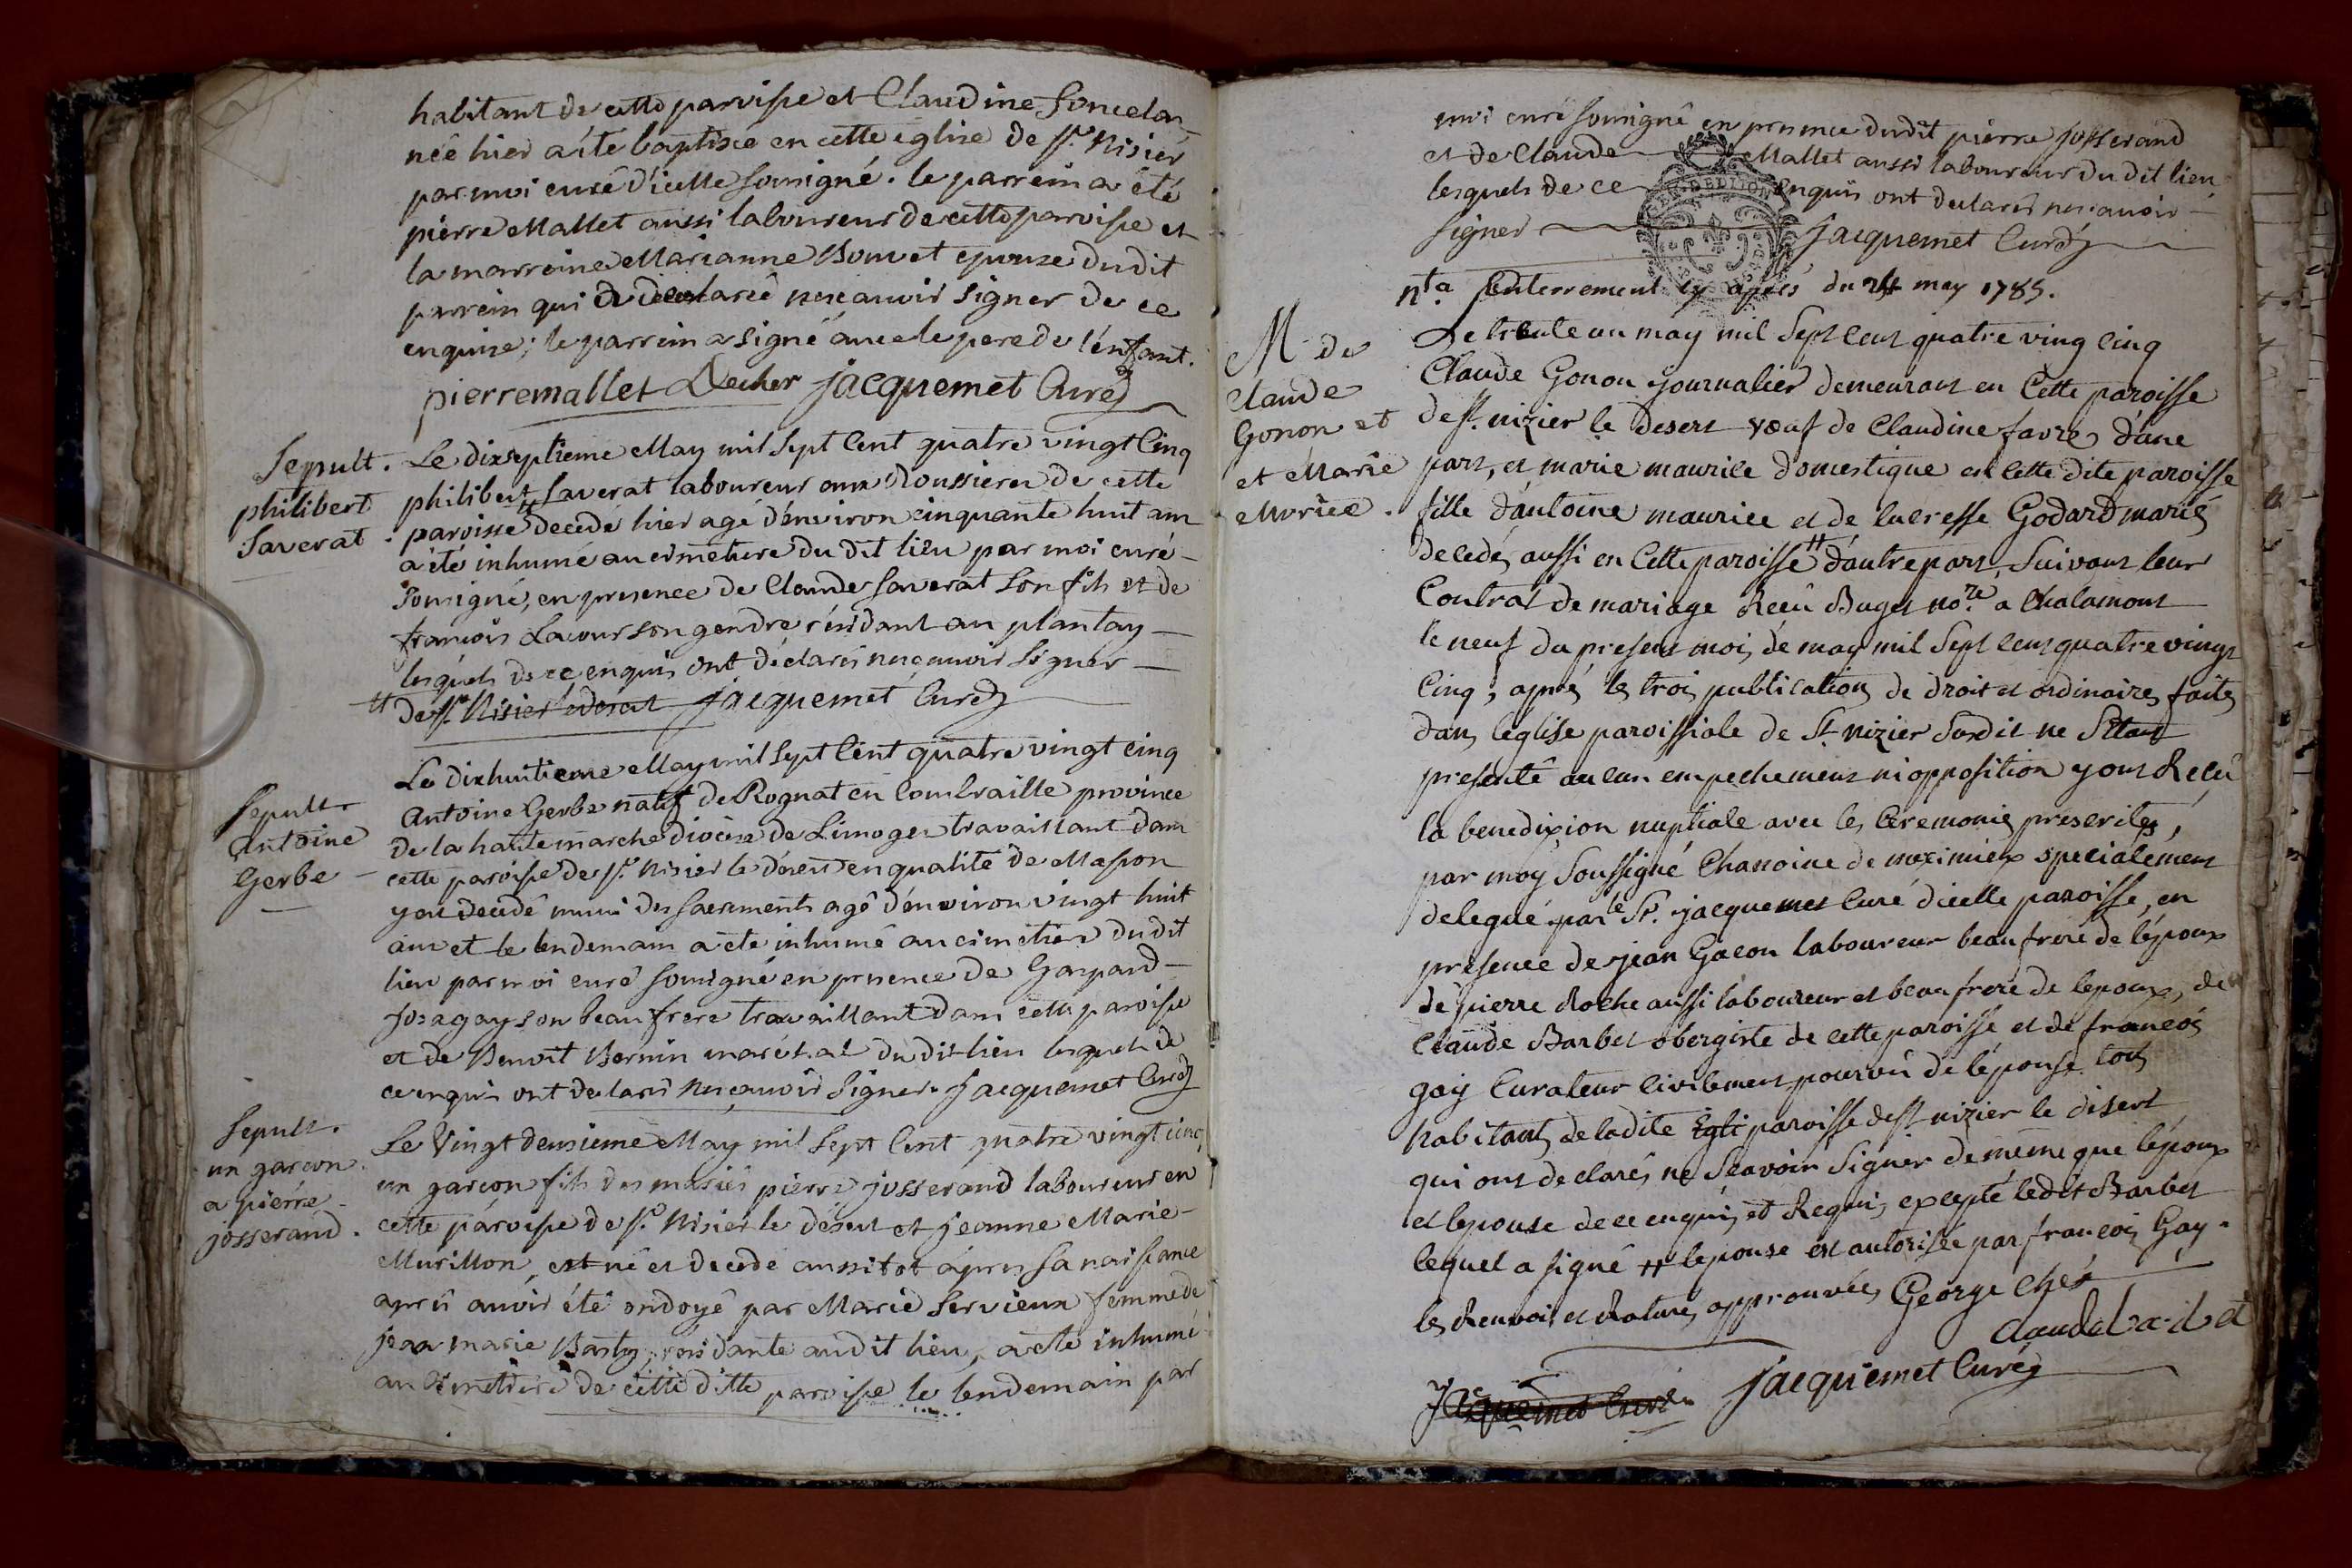 habitant de cette paroisse et Claudine Foncelar
née hier a été baptisée en cette église de St. Nisier
par moi curé d'icelle sousigné. le parrein a été
pierre Mallet aussi laboureur de cette paroisse et
la marreine Marianne Bouvet epouse du dit
parrein qui a declarée ne sçauoir signer de ce
enquise; le parrein a signé avec le pere de l'enfant.
pierre mallet Decher jacquemet Curé
Sepult.
philibert
Saverat.
Le dixseptieme May mil sept Cent quatre vingt Cinq
philibert Saverat laboureur aux Roussieres de cette
paroisse # decedé hier agé d'environ cinquante huit ans
a été inhumé au cimetiere du dit lieu par moi curé
sousigné, en presence de Claude Saverat son fils et de
francois Lacour son gendre résidant au plantay
lesquels de ce enquis ont déclarés ne sçauoir signer
# de St. Nisier le desert jacquemet Curé
Sepult.
Antoine
Gerbe
Le dixhuitieme May mil sept Cent quatre vingt cinq
Antoine Gerbe natif de Rognat en Combraille province
de la haute marche diocese de Limoges travaillant dans
cette paroisse de St. Nisier le désert en qualité de Masson
y est decedé muni des sacrements agé d'environ vingt huit
ans et le lendemain a été inhumé au cimetiere du dit
lieu par moi curé sousigné en presence de Gaspard
son beau frere travaillant dans cette paroisse
et de Benoit Bernin maréchal du dit lieu lesquels de
ce enquis ont declarés ne sçauoir signer. jacquemet Curé
Sepult.
un garcon
a pierre
josserand.
Le Vingt deuxieme May mil sept Cent quatre vingt cinq
un garcon fils des mariés pierre josserand laboureur en
cette paroisse de St. Nisier le désert et jeanne Marie
Murillon, est né et decedé aussitot apres sa naissance
après auoir été ondoyé par Marie Servieux femme de
jean marie Barby, residante audit lieu, a été inhumé
au cimetiere de cette ditte paroisse le lendemain par
moi curé sousigné en presence dudit pierre josserand
et de Claude Mallet aussi laboureur du dit lieu
lesquels de ce enquis ont declarés ne sçauoir
signer jacquemet Curé
nta l'enterrement cy après du 24 may 1785.
M. de
Claude
Gonon et
et Marie
Morice.
Le trente un may mil Sept Cent quatre ving Cinq
Claude Gonon journalier demeurant en Cette paroisse
de St. nizier le desert veuf de Claudine favre d'une
part, et marie maurice domestique en Cette dite paroisse
fille d'antoine maurice et de lucresse Godard mariés
decedés aussi en Cette paroisse # d'autre part, Suivant leur
Contrat de mariage Recû Buget nore. a Chalamont
le neuf du present mois de may mil Sept cent quatre vingt
Cinq; aprés les trois publications de droit et ordinaires faites
dans l'eglise paroissiale de St. nizier Susdit ne S'etant
presenté aucun empechement ni opposition y ont Recû
la benediction nuptiale avec les Cérémonies prescrites,
par moy Soussigné Chanoine de meximieux specialement
delegué par le Sr. jacquemet Curé d'icelle paroisse, en
presence de jean Gacon laboureur beau frere de l'époux
de pierre Roche aussi laboureur et beau frere de lepoux, de
Claude Barbet obergiste de cette paroisse et de francois
gay Curateur Civilement pourvû de l'épouse tous
habitants de ladite Egli paroisse de St nizier le désert
qui ont declarés ne Scavoir Signer de même que lépoux
et lepouse de ce enquis et Requis, excepté ledit Barbet
lequel a signé # lepouse est autorisée par francois Gay.
les Renvois et Ratures approuvées George Ch
jacquemet Curé
Jacquemet Curé